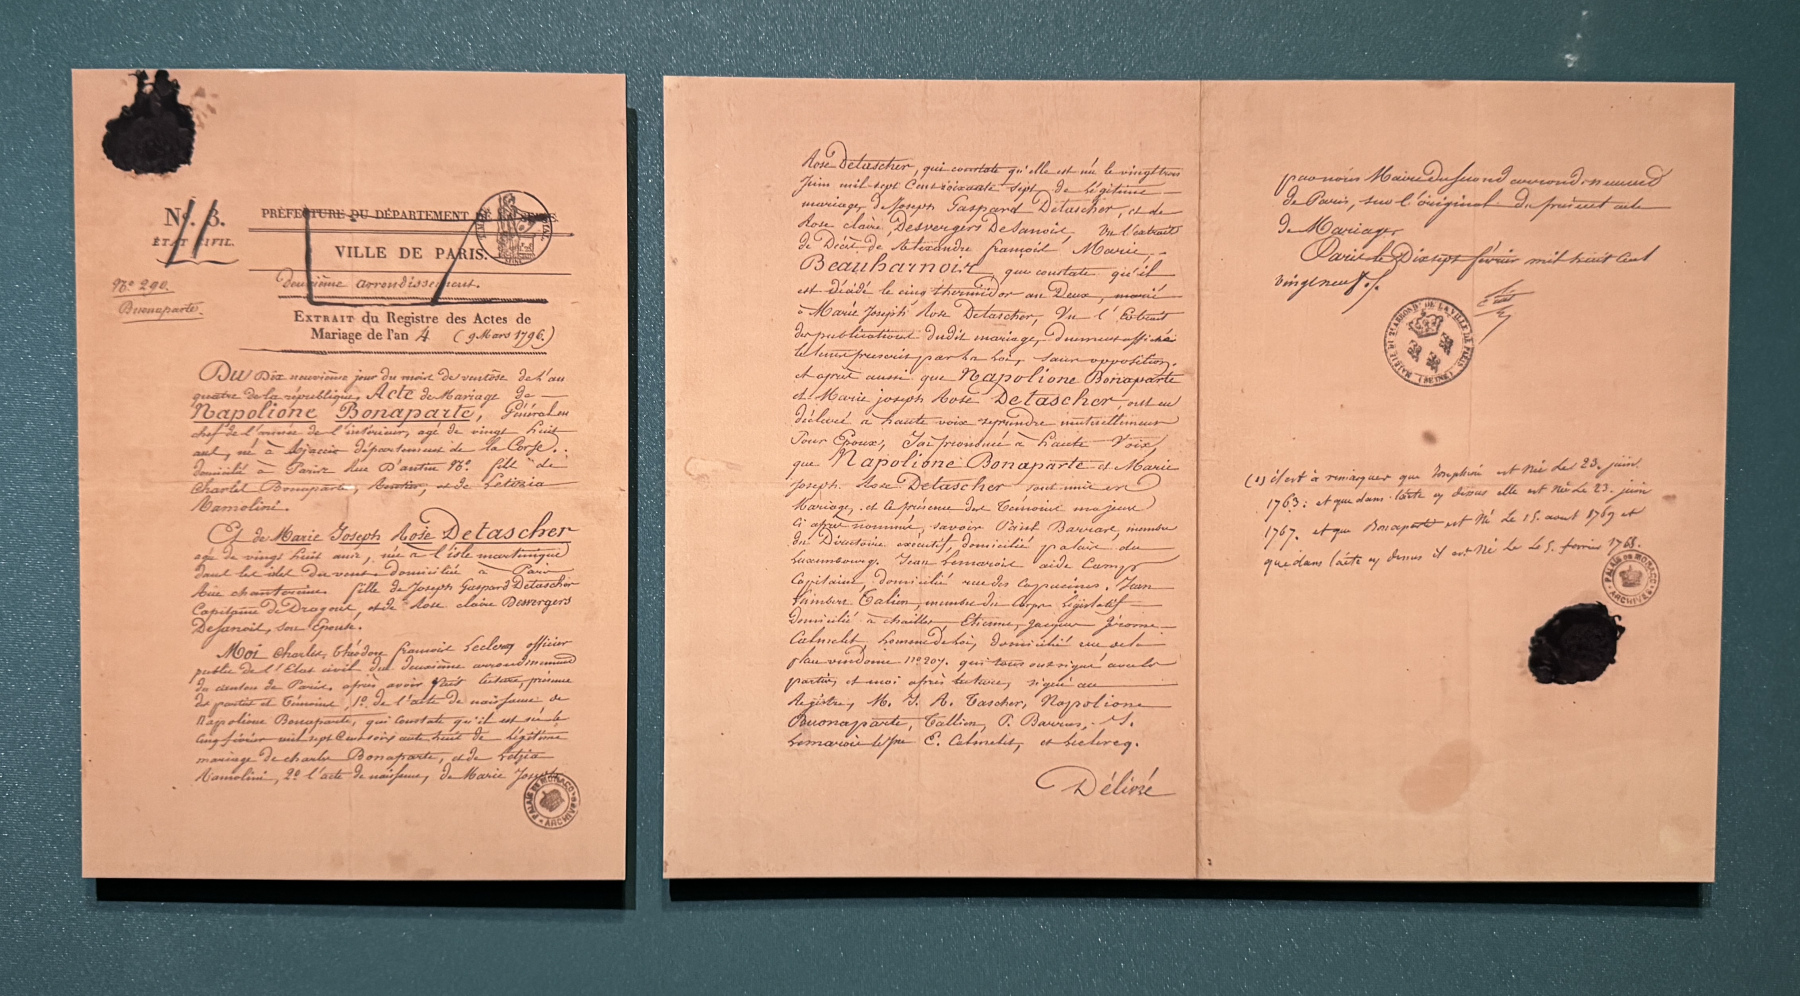 Nº. 3.
ÉTAT CIVIL.
Nº 290.
Buonaparte.
PRÉFECTURE DU DÉPARTEMENT DE LA SEINE.
VILLE DE PARIS.
deuxième arrondissement.
EXTRAIT du Registre des Actes de
Mariage de l'an 4 (9 Mars 1796)
Du Dix neuvième jour du mois de ventôse de l'an
quatre de la république, Acte de Mariage de
Napolione Bonaparte, Général en
chef de l'armée de l'intérieur, agé de vingt huit
ans, né à Ajaccio département de la Corse,
domicilié à Paris rue D'antin Nº. fils de
Charles Bonaparte, Rentier, et de Letizia
Ramolini.
Et de Marie Joseph Rose Detascher
agé de vingt huit ans, née à l'isle martinique
dans les isles du vent, domiciliée à Paris
Rue chantereine fille de Joseph Gaspard Detascher
Capitaine de Dragons, et de Rose claire Desvergers
Desanoit, son Epouse.
Moi Charles Théodore françois Leclercq officier
public de l'Etat civil du deuxième arrondissement
du canton de Paris, après avoir fait lecture, présence
des parties et Témoins, 1º. de l'acte de naissance de
Napolione Bonaparte, qui constate qu'il est né le
cinq février mil sept Cent soixante huit de légitime
mariage de charles Bonaparte, et de Letizia
Ramolini, 2º l'acte de naissance, de Marie Joseph
PALAIS DE MONACO
ARCHIVES
Rose Detascher, qui constate qu'elle est née le vingt trois
Juin mil sept Cent soixante sept, de légitime
mariage, de Joseph Gaspard Detascher, et de
Rose claire, Desvergers Desanoit, Vu l'extrait
de Décès de Alexandre françois Marie,
Beauharnois, que constate qu'il
est décédé le cinq thermidor an Deux, marié
à Marie Joseph Rose Detascher, Vu l'Extrait
des publications dudit mariage, dument affiché
le tems prescrit par la loi, sans opposition,
et après aussi que Napolione Bonaparte
et Marie joseph Rose Detascher, ont eu
déclaré à haute voix se prendre mutuellement
Pour Epoux, J'ai prononcé à haute Voix
que Napolione Bonaparte et Marie
Joseph Rose Detascher sont unis en
Mariage, et ce présence des Témoins majeurs
Ci après nommés, savoir Paul Barras, membre
du Directoire exécutif, domicilié palais du
Luxembourg, Jean Lemarois aide Camp
Capitaine, domicilié rue des Capucines, Jean
Lambert Talien, membre du Corps Législatif
domicilié à chaillot, Etienne, Jacques Jérome
Calmelet homme de loi, domicilié rue de la
place vendome nº 207. qui tous ont signé avec les
parties, et moi après lecture, signé au
Registre, M. J. R. Tascher, Napolione
Buonaparte, Tallien, P. Barras, J.
Lemarois le jne E. Calmelet, et Leclercq.
Délivré
par nous Maire du second arrondissement
de Paris, sur l'original du présent acte
de Mariage,
Paris le Dix sept février mil huit cent
vingt neuf.
MAIRIE DU 2e ARRONDt DE LA VILLE DE PARIS
(SEINE)
(1) il est à remarquer que Joséphine est Née le 23. juin
1763: et que dans l'acte cy dessus elle est Née le 23. juin
1767. et que Bonaparte est Né le 15. aout 1769 et
que dans l'acte cy dessus il est Né le 5. fevrier 1768.
PALAIS DE MONACO
ARCHIVES